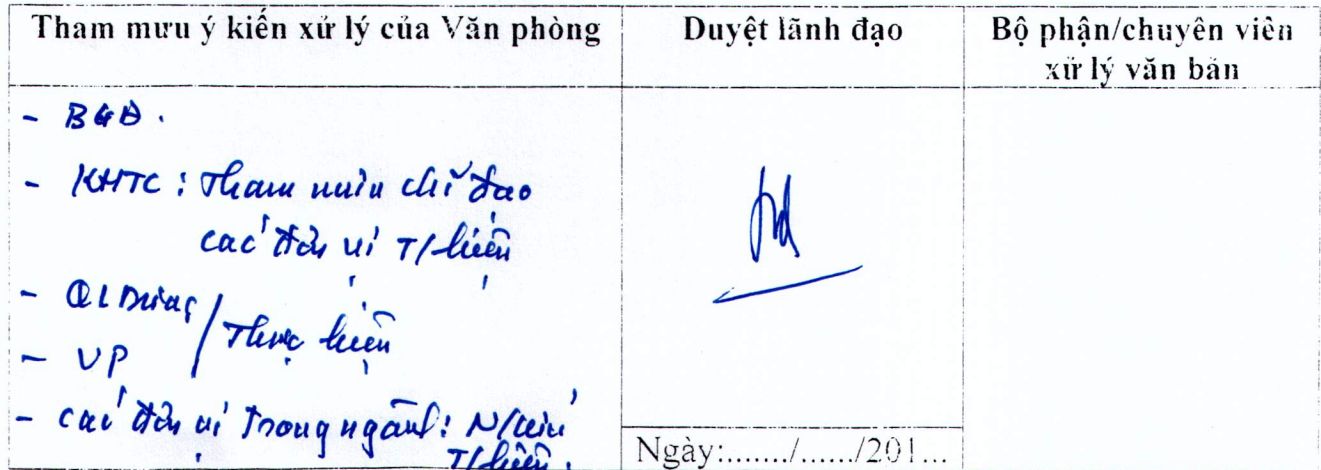 Tham mưu ý kiến xử lý của Văn phòng
Duyệt lãnh đạo
Bộ phận/chuyên viên
xử lý văn bản
- BGĐ.
- KHTC: Tham mưu chỉ đạo
các đơn vị T/hiện
- QL Dược
- VP
/ Thực hiện
- các đơn vị trong ngành: N/cứu
T/hiện.
Ngày:......./....../201...